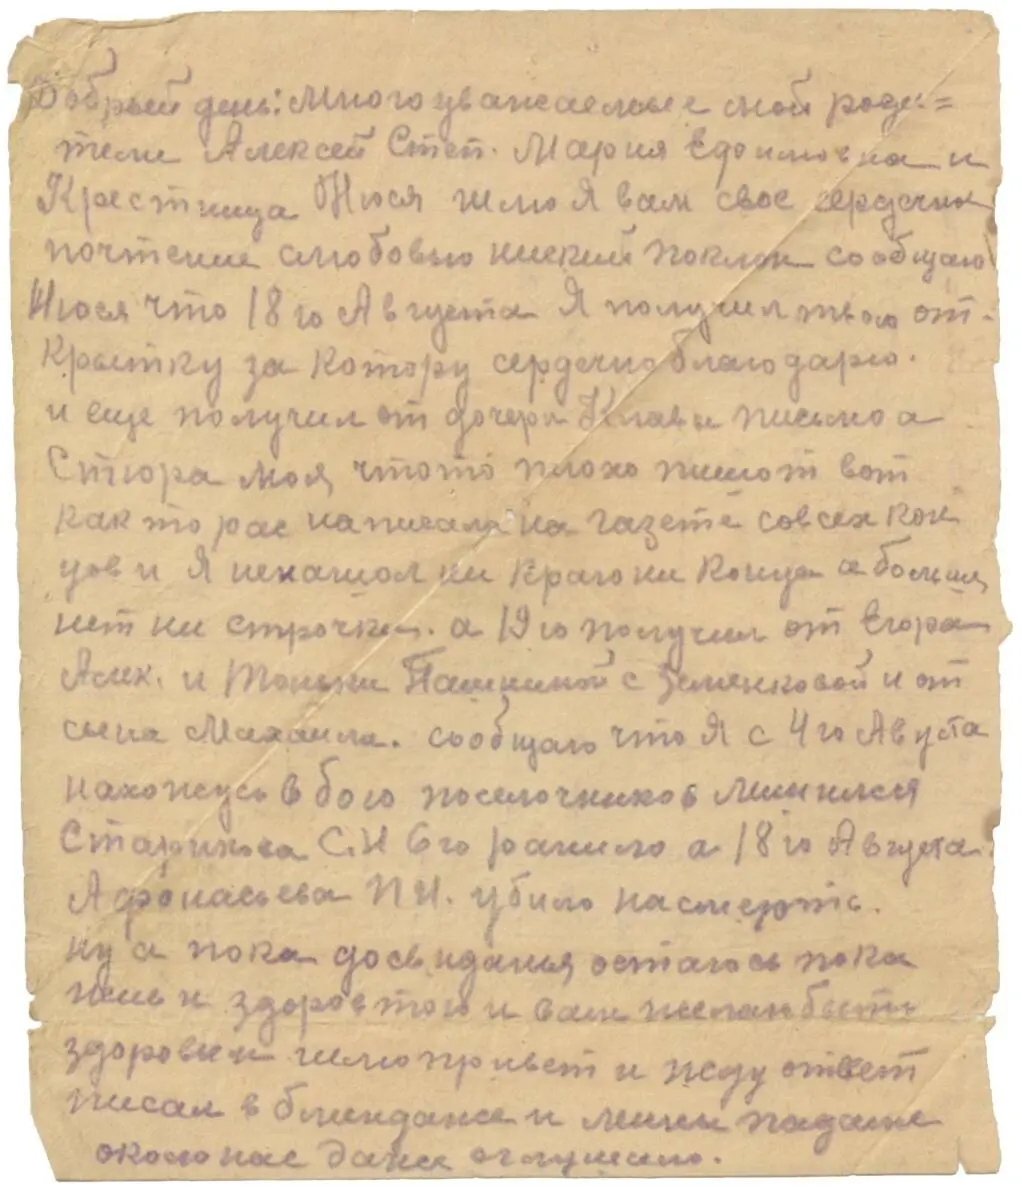 Добрый день: Многоуважаемые мой роди=
тели Алексей Степ. Мария Ефимовна и
Крестница Нюся шлю Я вам свое сердечное
почтение слюбовью ниский поклон сообщаю
Нюся что 18го Августа Я получил твою от-
крытку за котору сердечно благодарю.
и еще получил от дочери Клавы письмо а
Стюра моя чтото плохо пишот вот
как то рас написала на газете совсех кон
цов и Я ненашол ни краю ни конца а больше
нет ни строчки. а 19го получил от Егора
Алек. и Тоньки Пашниной с Зеленковой и от
сына Михаила. сообщаю что Я с 4го Августа
нахожусь в бою поселочников лишился
Старикова С.И 6го ранило а 18го Августа
Афонасьева П.И. убило насмерть.
ну а пока досвиданья остаюсь пока
жив и здоров тою и вам желаю быть
здоровым шлю привет и жду ответ
писал в блиндаже и мины падали
около нас даже оглушило.